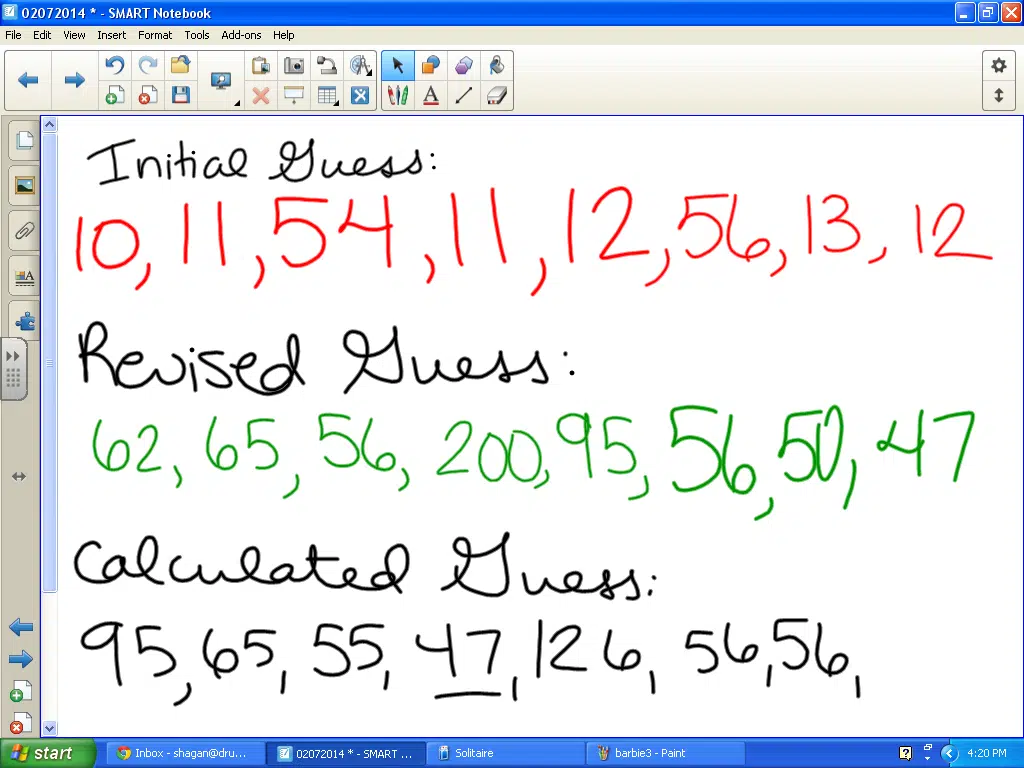 02072014 * - SMART Notebook
File Edit View Insert Format Tools Add-ons Help
Initial Guess:
10, 11, 54, 11, 12, 56, 13, 12
Revised Guess:
62, 65, 56, 200, 95, 56, 50, 47
Calculated Guess:
95, 65, 55, 47, 126, 56, 56,
start Inbox - shagan@dru... 02072014 * - SMART ... Solitaire barbie3 - Paint 4:20 PM